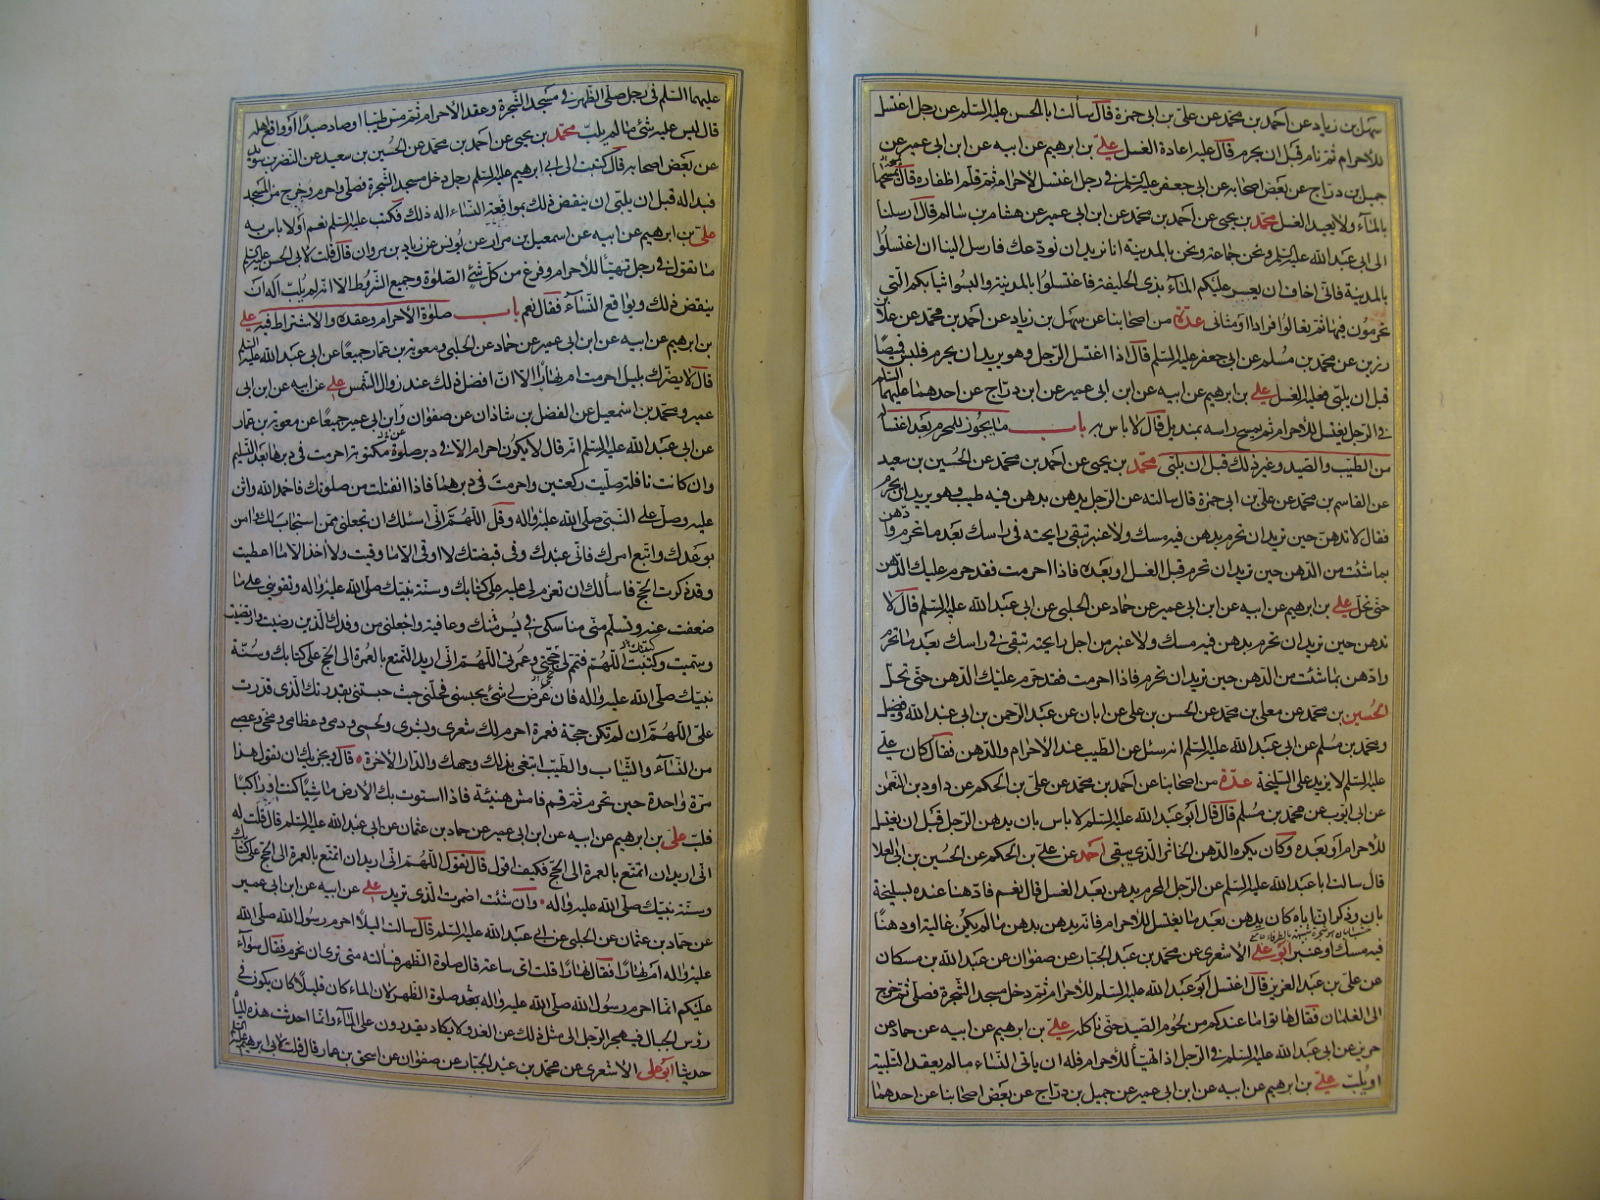 سهل بن زياد عن احمد بن محمد عن علي بن ابى حمزة قال سالت ابا الحسن عليه السلم عن رجل اغتسل
للاحرام ثم نام قبل ان يحرم قال عليه اعادة الغسل علي بن ابرهيم عن ابيه عن ابن ابى عمير عن
جميل بن دراج عن بعض اصحابه عن ابى جعفر عليه السلم فى رجل اغتسل لاحرام ثم قلم اظفاره قال يمسحها
بالماء ولا يعيد الغسل محمد بن يحيى عن احمد بن محمد عن ابن ابى عمير عن هشام بن سالم قال ارسلنا
الى ابى عبد الله عليه السلم ونحن جماعة ونحن بالمدينة انا نريد ان نودعك فارسل الينا ان اغتسلوا
بالمدينة فانى اخاف ان يعسر عليكم الماء بذى الحليفة فاغتسلوا بالمدينة والبسوا ثيابكم التى
تحرمون فيها ثم تعالوا فرادا او مثانى عدة من اصحابنا عن سهل بن زياد عن احمد بن محمد عن علا بن
رزين عن محمد بن مسلم عن ابى جعفر عليه السلم قال اذا اغتسل الرجل وهو يريد ان يحرم فلبس قميصا
قبل ان يلبى فعليه الغسل علي بن ابرهيم عن ابيه عن ابن ابى عمير عن ابن دراج عن احدهما عليهما السلم
فى الرجل يغتسل للاحرام ثم يمسح راسه بمنديل قال لا باس به باب ما يجوز للمحرم بعد اغتساله
من الطيب والصيد وغير ذلك قبل ان يلبى محمد بن يحيى عن احمد بن محمد عن الحسين بن سعيد
عن القاسم بن محمد عن علي بن ابى حمزة قال سالته عن الرجل يدهن بدهن فيه طيب وهو يريد ان يحرم
فقال لا تدهن حين تريد ان تحرم بدهن فيه مسك ولا عنبر تبقى رايحته فى راسك بعد ما تحرم وادهن
بما شئت من الدهن حين تريد ان تحرم قبل الغسل او بعده فاذا احرمت فقد حرم عليك الدهن
حتى تحل علي بن ابرهيم عن ابيه عن ابن ابى عمير عن حماد عن الحلبى عن ابى عبد الله عليه السلم قال لا
تدهن حين تريد ان تحرم بدهن فيه مسك ولا عنبر من اجل رايحته تبقى فى راسك بعد ما تحرم
وادهن بما شئت من الدهن حين تريد ان تحرم فاذا احرمت فقد حرم عليك الدهن حتى تحل
الحسين بن محمد عن معلى بن محمد عن الحسن بن علي عن ابان عن عبد الرحمن بن ابى عبد الله وفضيل
ومحمد بن مسلم عن ابى عبد الله عليه السلم انه سئل عن الطيب عند الاحرام والدهن فقال كان علي
عليه السلم لا يزيد على السليخة عدة من اصحابنا عن احمد بن محمد عن علي بن الحكم عن داود بن النعمن
عن ابى ايوب عن محمد بن مسلم قال قال ابو عبد الله عليه السلم لا باس بان يدهن الرجل قبل ان يغتسل
للاحرام او بعده وكان يكره الدهن الخاثر الذى يبقى احمد عن علي بن الحكم عن الحسين بن ابى العلا
قال سالت ابا عبد الله عليه السلم عن الرجل المحرم يدهن بعد الغسل قال نعم فادهنا عنده بسليخة
بان وذكر ان اباه كان يدهن بعد ما يغتسل للاحرام فانه يدهن بدهن ما لم يكن غالية او دهنا
فيه مسك او عنبر ابو علي الاشعرى عن محمد بن عبد الجبار عن صفوان عن عبد الله بن مسكان
عن علي بن عبد العزيز قال اغتسل ابو عبد الله عليه السلم للاحرام ثم دخل مسجد الشجرة فصلى ثم خرج
الى الغلمان فقال هاتوا ما عندكم من لحوم الصيد حتى ناكله علي بن ابرهيم عن ابيه عن حماد عن
حريز عن ابى عبد الله عليه السلم فى الرجل اذا تهيأ للاحرام فله ان ياتى النساء ما لم يعقد التلبية
او يلب علي بن ابرهيم عن ابيه عن ابن ابى عمير عن جميل بن دراج عن بعض اصحابنا عن احدهما
عليهما السلم فى رجل صلى الظهر فى مسجد الشجرة وعقد الاحرام ثم مس طيبا او صاد صيدا او واقع اهله
قال ليس عليه شئ ما لم يلب محمد بن يحيى عن احمد بن محمد عن الحسين بن سعيد عن النضر بن سويد
عن بعض اصحابه قال كتبت الى ابى ابرهيم عليه السلم رجل دخل مسجد الشجرة فصلى واحرم وخرج من المسجد
فبدا له قبل ان يلبى ان ينقض ذلك بمواقعة النساء اله ذلك فكتب عليه السلم نعم او لا باس به
علي بن ابرهيم عن ابيه عن اسمعيل بن مرار عن يونس عن زياد بن مروان قال قلت لابى الحسن عليه السلم
ما تقول فى رجل تهيأ للاحرام وفرغ من كل شئ الصلوة وجميع الشروط الا انه لم يلب اله ان
ينقض ذلك ويواقع النساء فقال نعم باب صلوة الاحرام وعقده والاشتراط فيه علي
بن ابرهيم عن ابيه عن ابن ابى عمير عن حماد عن الحلبى ومعوية بن عمار جميعا عن ابى عبد الله عليه السلم
قال لا يضرك بليل احرمت ام نهار الا ان افضل ذلك عند زوال الشمس علي عن ابيه عن ابن ابى
عمير ومحمد بن اسمعيل عن الفضل بن شاذان عن صفوان وابن ابى عمير جميعا عن معوية بن عمار
عن ابى عبد الله عليه السلم انه قال لا يكون احرام الا فى دبر صلوة مكتوبة احرمت فى دبرها بعد التسليم
وان كانت نافلة صليت ركعتين واحرمت فى دبرهما فاذا انفتلت من صلوتك فاحمد الله واثن
عليه وصل على النبى صلى الله عليه واله وقل اللهم انى اسئلك ان تجعلنى ممن استجاب لك وامن
بوعدك واتبع امرك فانى عبدك وفى قبضتك لا اوقى الا ما وقيت ولا اخذ الا ما اعطيت
وقد ذكرت الحج فاسألك ان تعزم لى عليه على كتابك وسنة نبيك صلى الله عليه واله وتقوينى على ما
ضعفت عنه وتسلم منى مناسكى فى يسر منك وعافية واجعلنى من وفدك الذين رضيت وارتضيت
وسميت وكتبت اللهم فتمم لى حجتى وعمرتى اللهم انى اريد التمتع بالعمرة الى الحج على كتابك وسنة
نبيك صلى الله عليه واله فان عرض لى شئ يحبسنى فحلنى حيث حبستنى بقدرتك الذى قدرت
على اللهم ان لم تكن حجة فعمرة احرم لك شعرى وبشرى ولحمى ودمى وعظامى ومخى وعصبى
من النساء والثياب والطيب ابتغى بذلك وجهك والدار الاخرة قال ويجزيك ان تقول هذا
مرة واحدة حين تحرم ثم قم فامش هنيئة فاذا استوت بك الارض ماشيا كنت او راكبا
فلب علي بن ابرهيم عن ابيه عن ابن ابى عمير عن حماد بن عثمان عن ابى عبد الله عليه السلم قال قلت له
انى اريد ان اتمتع بالعمرة الى الحج فكيف اقول قال تقول اللهم انى اريد ان اتمتع بالعمرة الى الحج على كتابك
وسنة نبيك صلى الله عليه واله وان شئت اضمرت الذى تريد علي عن ابيه عن ابن ابى عمير
عن حماد بن عثمان عن الحلبى عن ابى عبد الله عليه السلم قال سالت اليلا احرم رسول الله صلى الله
عليه واله ام نهارا فقال نهارا قلت اى ساعة قال صلوة الظهر فسالته متى ترى ان نحرم فقال سواء
عليكم انما احرم رسول الله صلى الله عليه واله بعد صلوة الظهر لان الماء كان قليلا كان يكون فى
رؤس الجبال فيهجر الرجل الى مثل ذلك من الغد ولا يكاد يقدرون على الماء وانما احدثت هذه المياه
حديثا ابو علي الاشعرى عن محمد بن عبد الجبار عن صفوان عن اسحق بن عمار قال قلت لابى ابرهيم عليه السلم